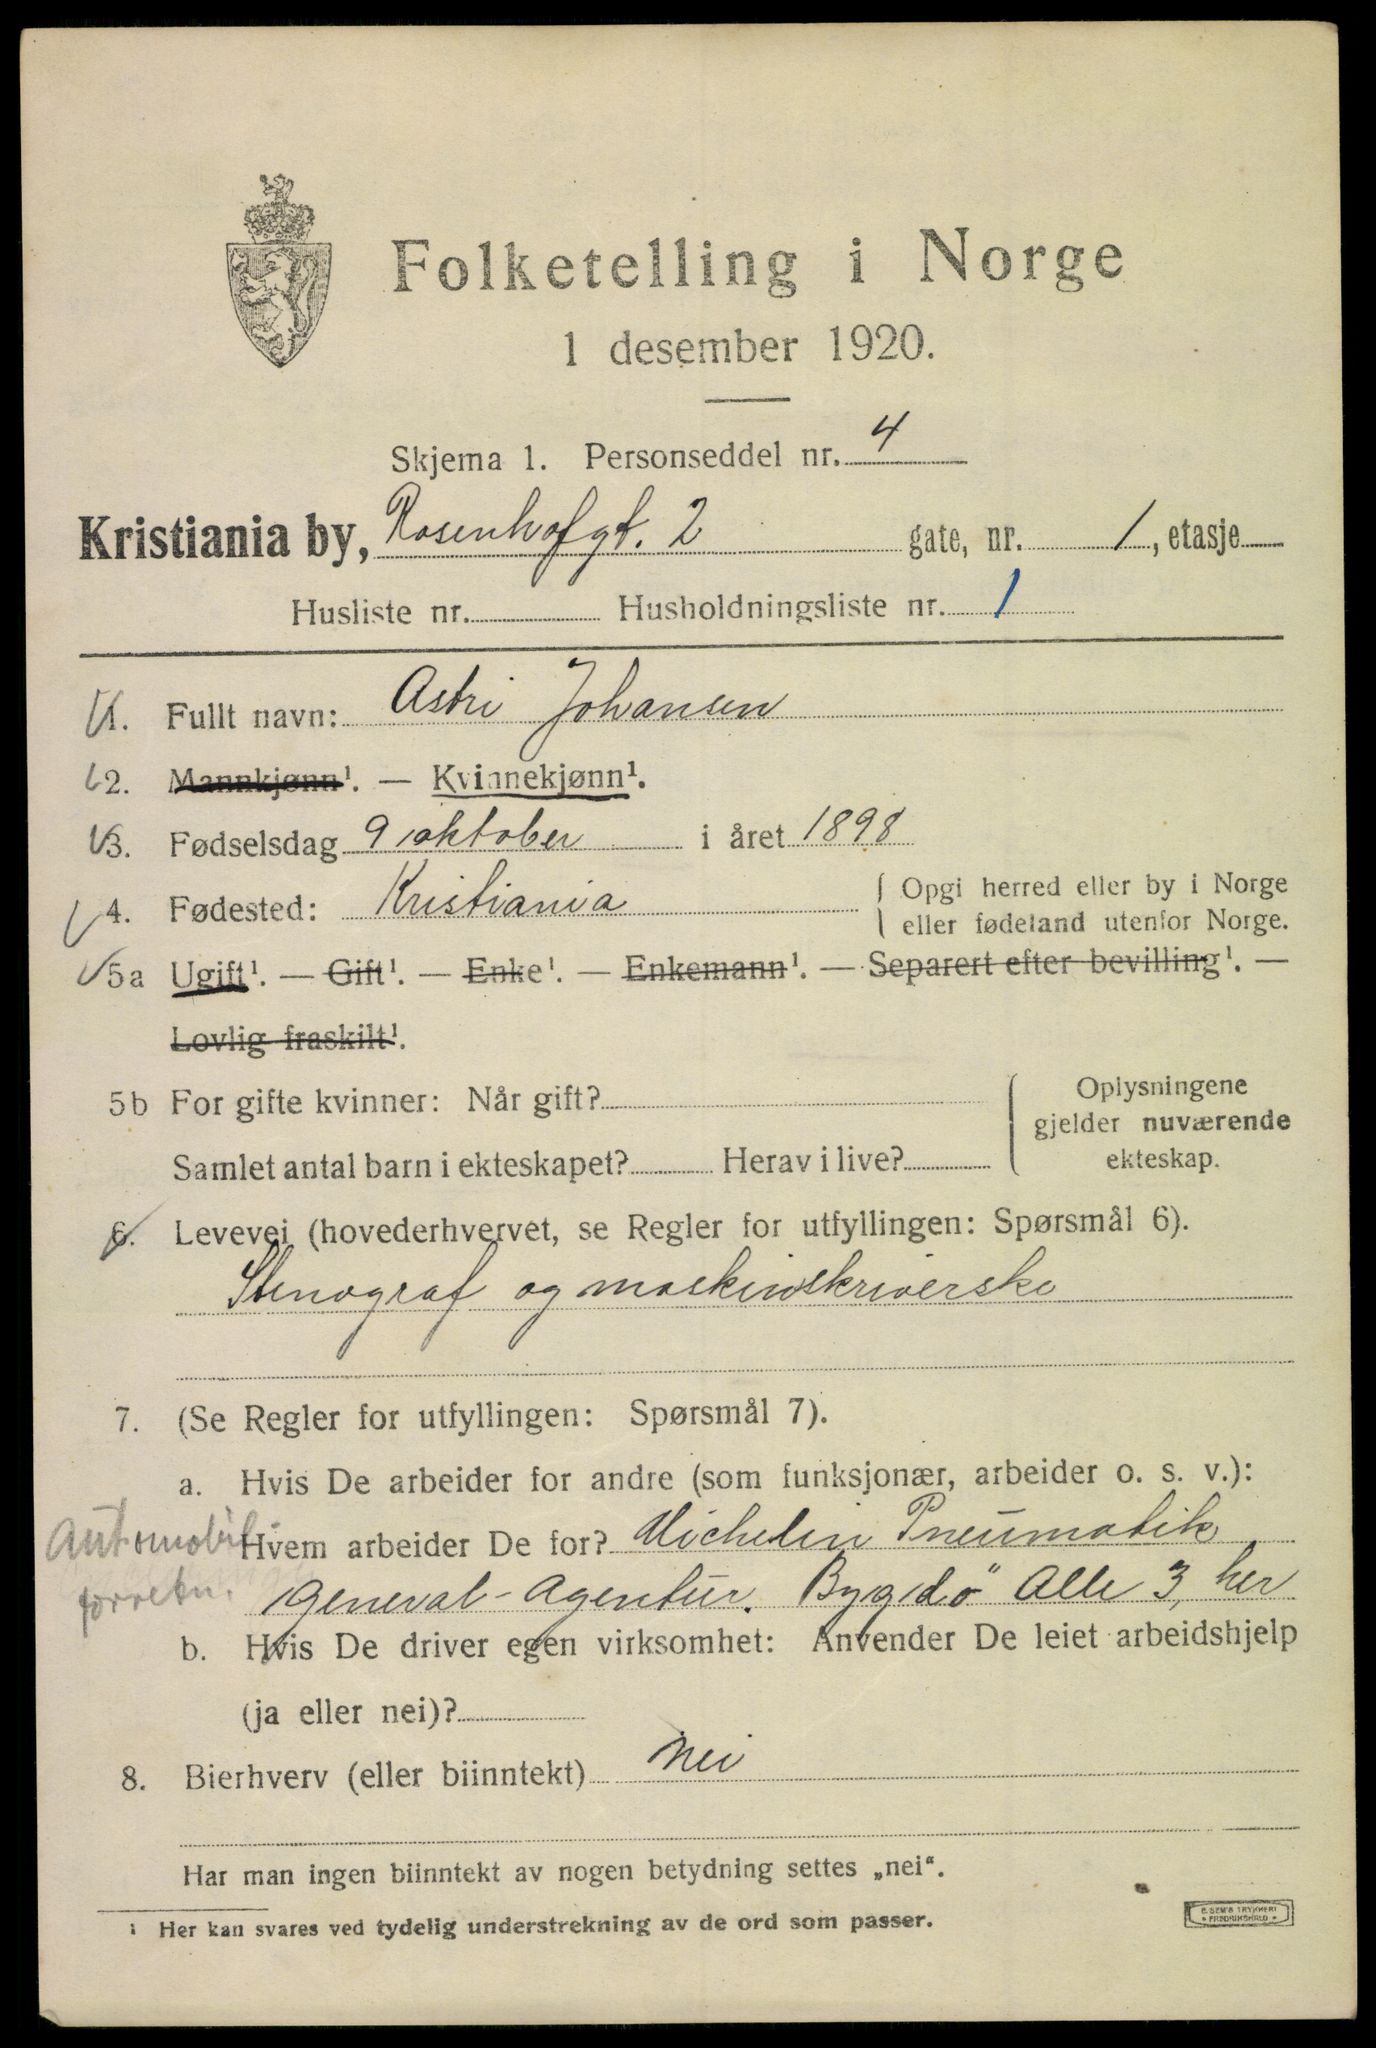 Folketelling i Norge
1 desember 1920.
Skjema 1. Personseddel nr. 4
Kristiania by, Rosenhofgt. 2 gate, nr. 1, etasje
Husliste nr. Husholdningsliste nr. 1
1. Fullt navn: Astri Johansen
2. Mannkjønn¹. — Kvinnekjønn¹.
3. Fødselsdag 9 oktober i året 1898
4. Fødested: Kristiania { Opgi herred eller by i Norge
eller fødeland utenfor Norge.
5a Ugift¹. — Gift¹. — Enke¹. — Enkemann¹. — Separert efter bevilling¹. —
Lovlig fraskilt¹.
5b For gifte kvinner: Når gift?
Samlet antal barn i ekteskapet? Herav i live?
Oplysningene
gjelder nuværende
ekteskap.
6. Levevei (hovederhvervet, se Regler for utfyllingen: Spørsmål 6).
Stenograf og maskinskriverske
7. (Se Regler for utfyllingen: Spørsmål 7).
a. Hvis De arbeider for andre (som funksjonær, arbeider o. s. v.):
Automobil-
forretn.
Hvem arbeider De for? Michelin Pneumatik
General-Agentur. Bygdö Alle 3, her
b. Hvis De driver egen virksomhet: Anvender De leiet arbeidshjelp
(ja eller nei)?
8. Bierhverv (eller biinntekt) Nei
Har man ingen biinntekt av nogen betydning settes „nei“.
¹ Her kan svares ved tydelig understrekning av de ord som passer.
E. SEM'S TRYKKERI
FREDRIKSHALD